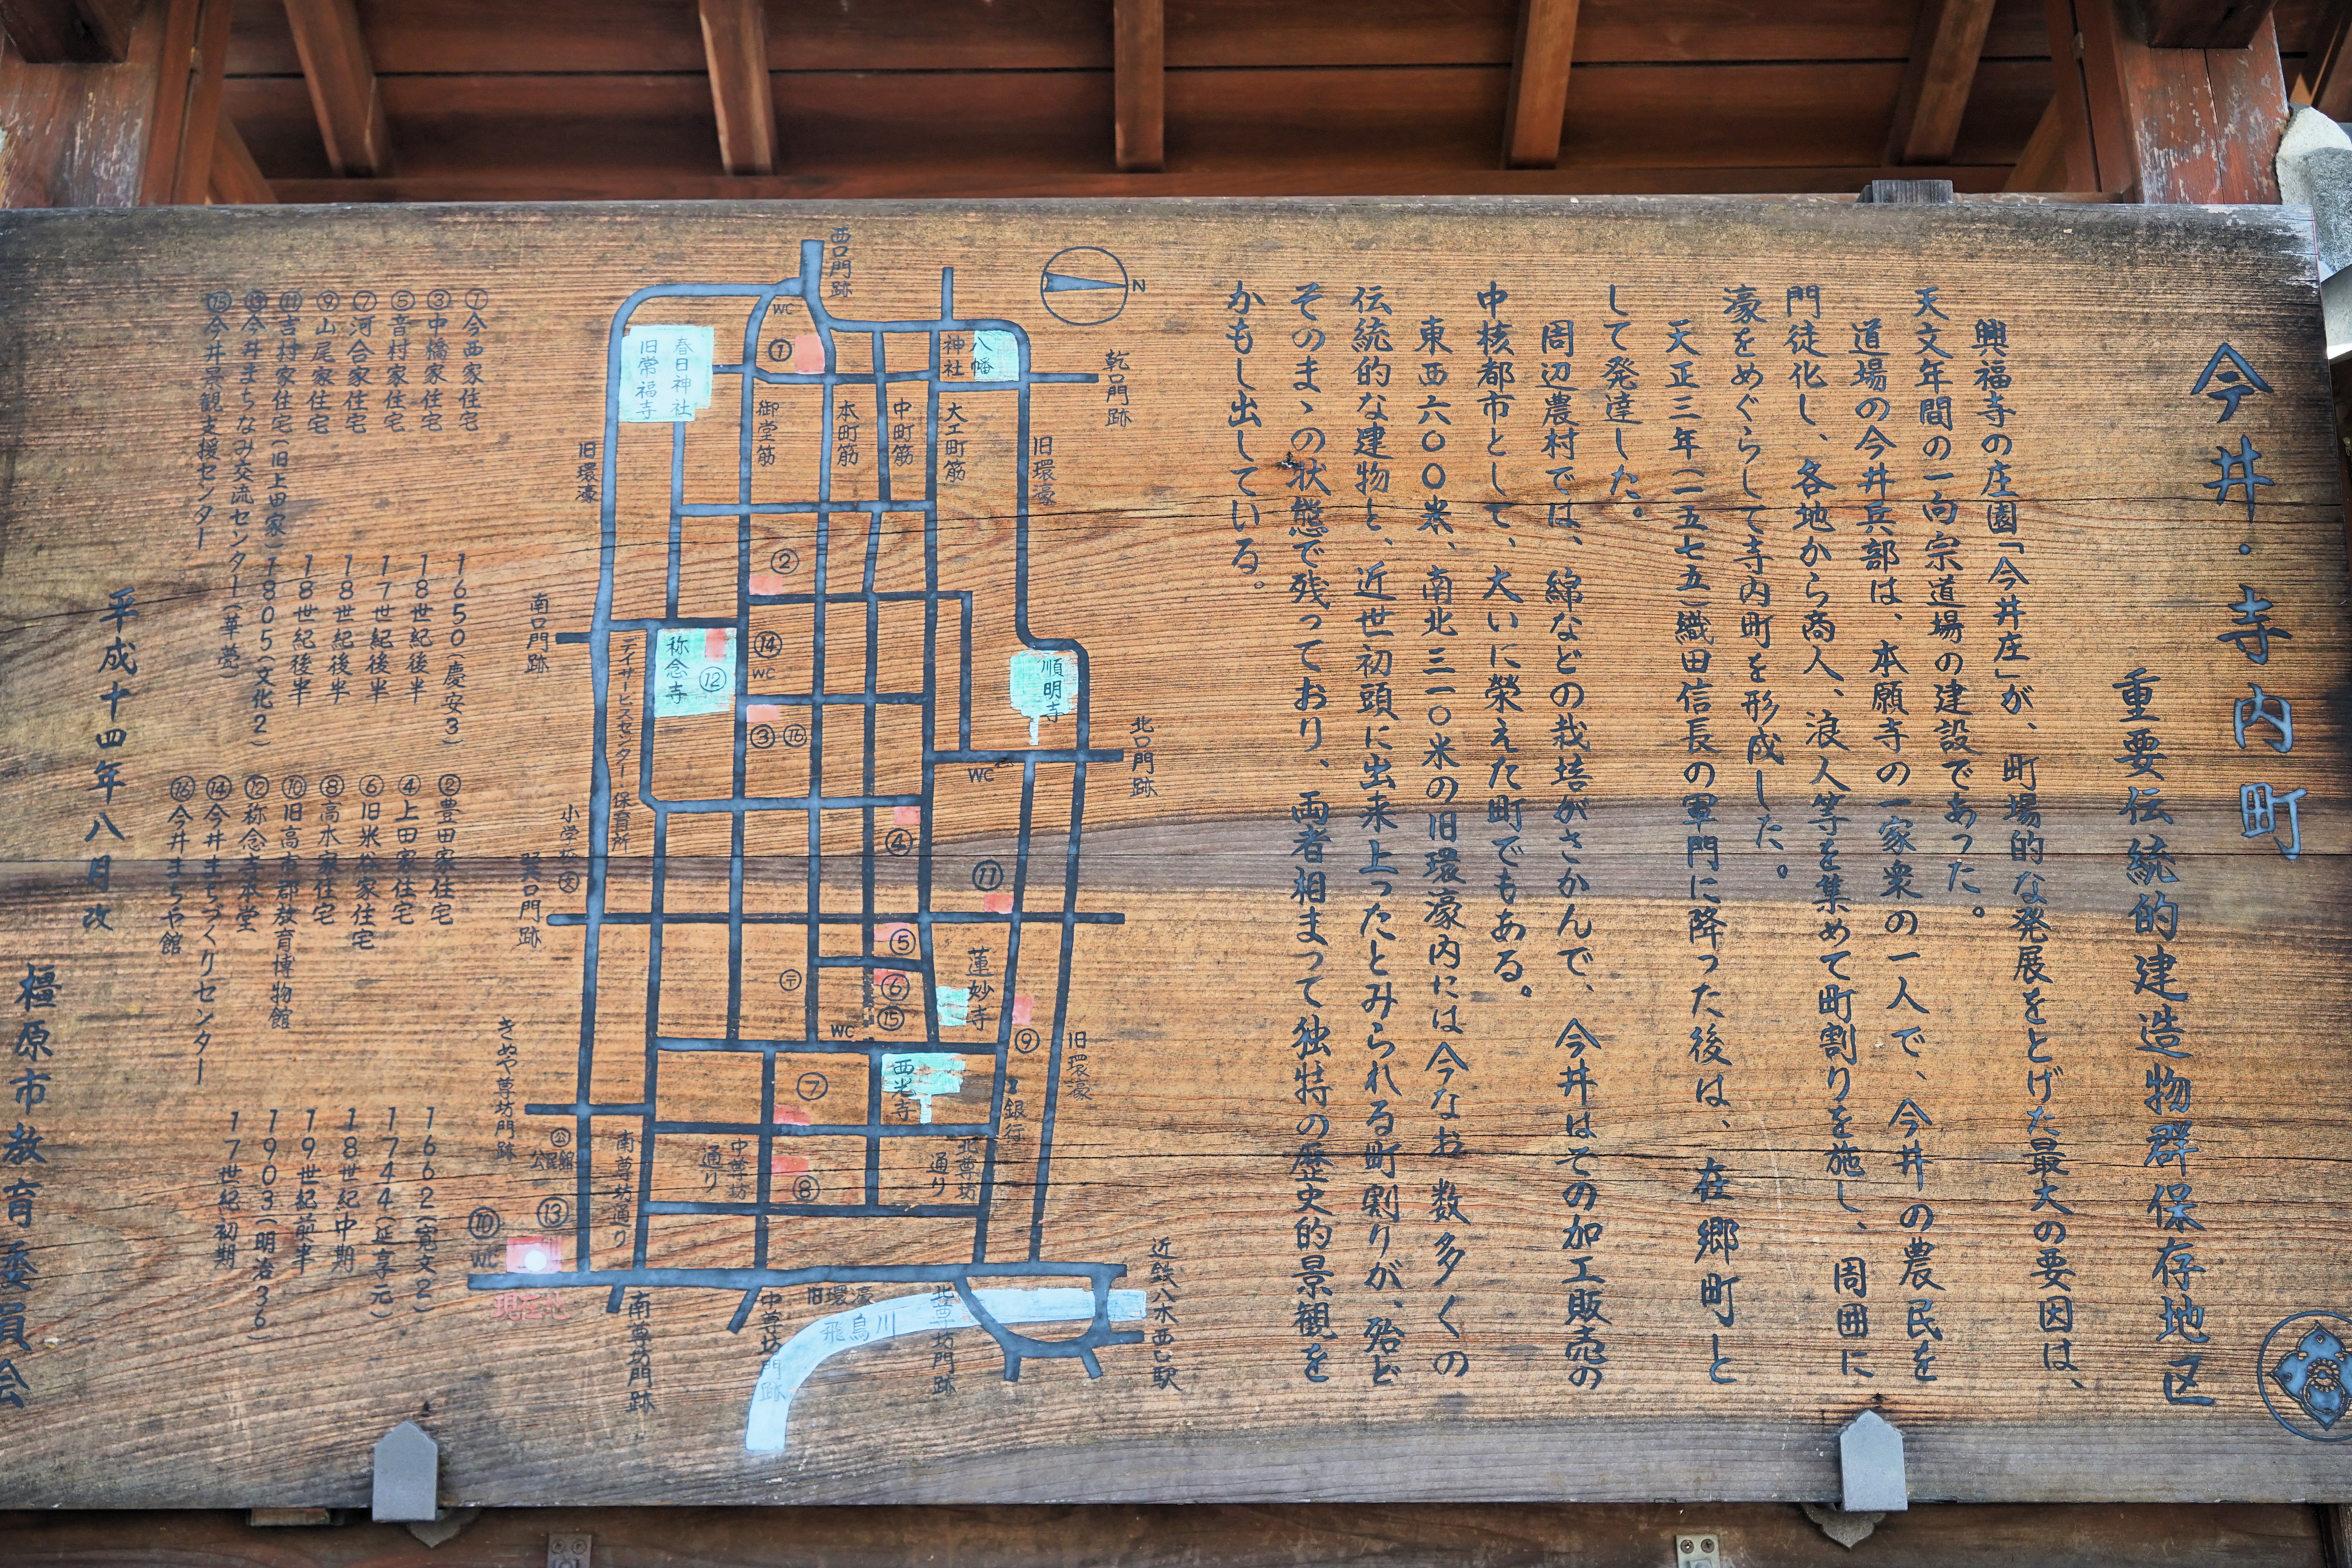 今井・寺内町
重要伝統的建造物群保存地区
興福寺の庄園「今井庄」が、町場的な発展をとげた最大の要因は、
天文年間の一向宗道場の建設であった。
道場の今井兵部は、本願寺の一家衆の一人で、今井の農民を
門徒化し、各地から商人、浪人等を集めて町割りを施し、周囲に
濠をめぐらして寺内町を形成した。
天正三年(一五七五)織田信長の軍門に降った後は、在郷町と
して発達した。
周辺農村では、綿などの栽培がさかんで、今井はその加工販売の
中核都市として、大いに榮えた町でもある。
東西六〇〇米、南北三一〇米の旧環濠内には今なお数多くの
伝統的な建物と、近世初頭に出来上ったとみられる町割りが、殆ど
そのまゝの状態で残っており、両者相まって独特の歴史的景観を
かもし出している。
N
西口門跡
乾口門跡
北口門跡
南口門跡
巽口門跡
きぬや尊坊門跡
南尊坊門跡
中尊坊門跡
北尊坊門跡
近鉄八木西口駅
飛鳥川
旧環濠
旧環濠
旧環濠
旧環濠
八幡
神社
春日神社
旧常福寺
御堂筋
本町筋
中町筋
大工町筋
順明寺
称念寺
蓮妙寺
西光寺
デイサービスセンター
保育所
小学校
文
銀行
公
公民館
南尊坊通り
中尊坊
通り
北尊坊
通り
WC
WC
WC
WC
WC
〒
①
②
③
④
⑤
⑥
⑦
⑧
⑨
⑩
⑪
⑫
⑬
⑭
⑮
⑯
現在地
①今西家住宅 1650(慶安3)
③中橋家住宅 18世紀後半
⑤音村家住宅 17世紀後半
⑦河合家住宅 18世紀後半
⑨山尾家住宅 18世紀後半
⑪吉村家住宅(旧上田家) 1805(文化2)
⑬今井まちなみ交流センター(華甍)
⑮今井景観支援センター
②豊田家住宅 1662(寛文2)
④上田家住宅 1744(延享元)
⑥旧米谷家住宅 18世紀中期
⑧高木家住宅 19世紀前半
⑩旧高市郡教育博物館 1903(明治36)
⑫称念寺本堂 17世紀初期
⑭今井まちづくりセンター
⑯今井まちや館
平成十四年八月改
橿原市教育委員会